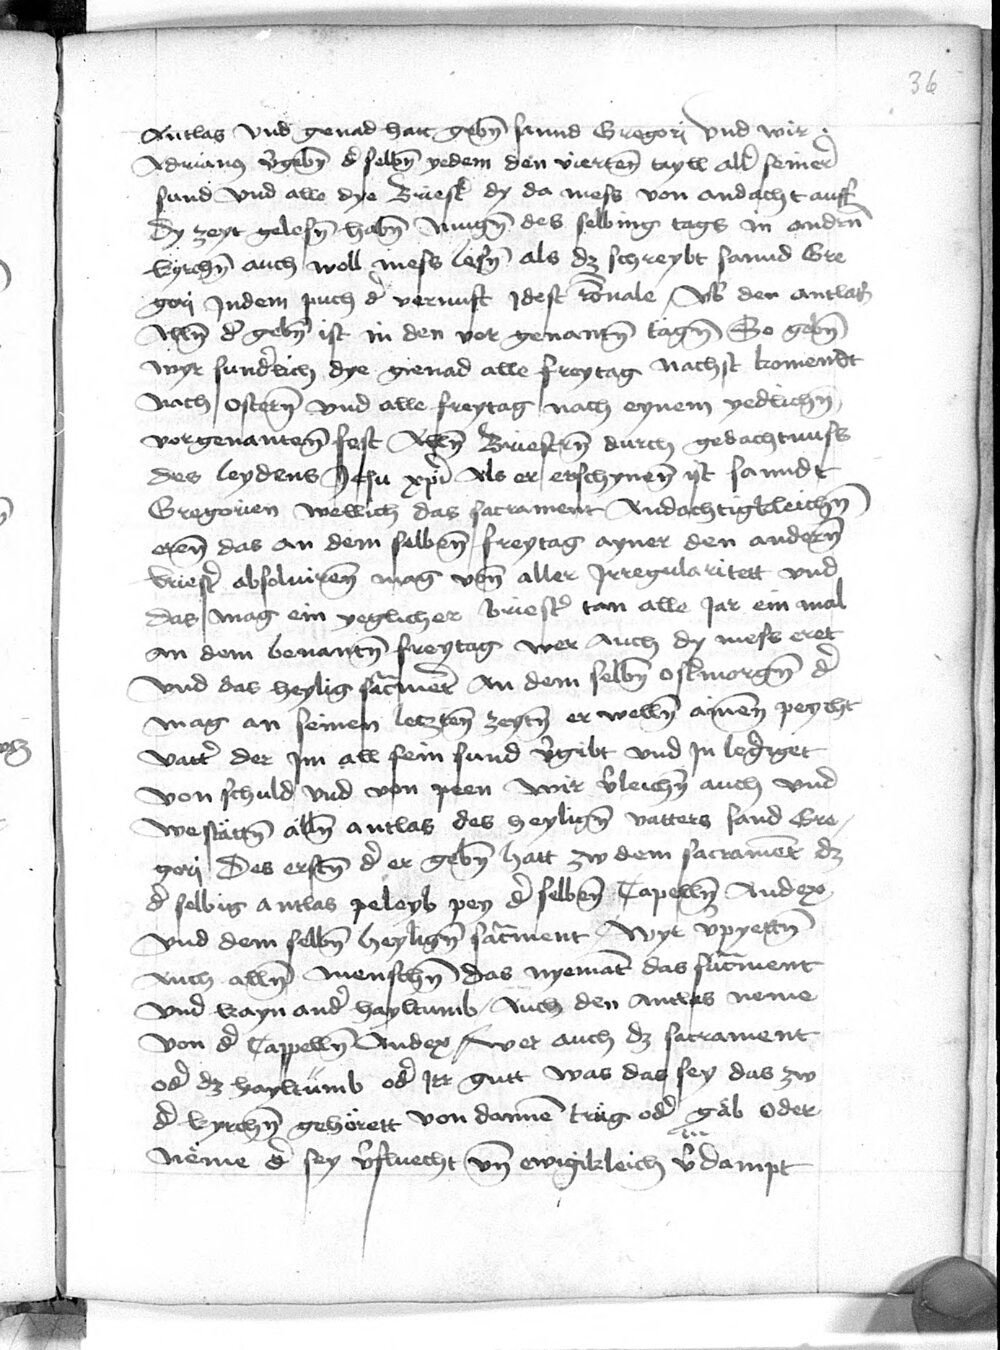 36
Antlas vnd genad hatt gebn̄ sannd Gregorj vnd wir
Adrianꝰ v̓gebn̄ d̓ selbn̄ yedem den vierten̄ tayll all̓ seiner̄
sund vnd alle dye Briest̓ dy da mess von andacht auff
Dy zeyt gelesn̄ habn̄ mugn̄ des selbing tags in andrn̄
kyrchn̄ auch woll mess lesn̄ als dz schreybt sannd Gre
gorj Jndem puch d̓ vernuft jdest rōnale / Vb̓ den antlas
Alln̄ d̓ gebn̄ ist in den vor genantn̄ tagn̄ So gebn̄
wyr sund̓lich dye gienad alle freytag nachst komendt
Nach ostern̄ vnd alle freytag nach eynem yedlichn̄
vorgenanten̄ fest Alln̄ Briestrn̄ durch gedachtnuss
des leydens Jesu xp̄i Als er erschynen̄ ist sanndt
Gregorien wellich das sacrament Andachtigkleichn̄
eren̄ das an dem selben̄ freytag ayner den andern̄
briest̓ absoluiren̄ mag von̄ aller Jrregularitett vnd
das mag ein yeglicher briest̓ tan alle Jar ein mal
an dem benantn̄ freytag wer Auch dy mess eret
vnd das heylig sac̄ment An dem selbn̄ ostmorgn̄ d̓
mag an seinen letzten̄ zeytn̄ er welln̄ ainen̄ peycht
vatt̓ der jm all sein sund v̓gibt vnd Jn led̓iget
von schuld vnd von peen Wir v̓leichn̄ auch vnd
westättn̄ alln̄ antlas des heylign̄ vatters sand Gre
gorj Des erstn̄ d̓ er gebn̄ hatt zw dem sacrament dz
d̓ selbig antlas peleyb pey d̓ selben̄ Capelln̄ Andex
vnd dem selbn̄ heylign̄ sac̄ment / Wyr v̓pyettn̄
Auch alln̄ menschn̄ das nyemāt das sac̄ment
vnd kayn and̓ hayltumb / Auch den antlas neme
von d̓ Cappelln̄ Andex / wer auch dz sacrament
od̓ dz hayltumb od̓ Jrr gutt was das sey das zw
d̓ kyrchn̄ gehörett von dannē träg od̓ gäb oder
näme d̓ sey v̓fluecht vn̄ ewigikleich v̓dampt